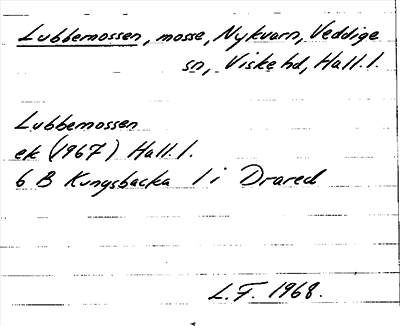 Lubbemossen, mosse, Nykvarn, Veddige
sn, Viske hd, Hall. l.
Lubbemossen
ek (1967) Hall. l.
6 B Kungsbacka 1 i Drared
L. F. 1968.